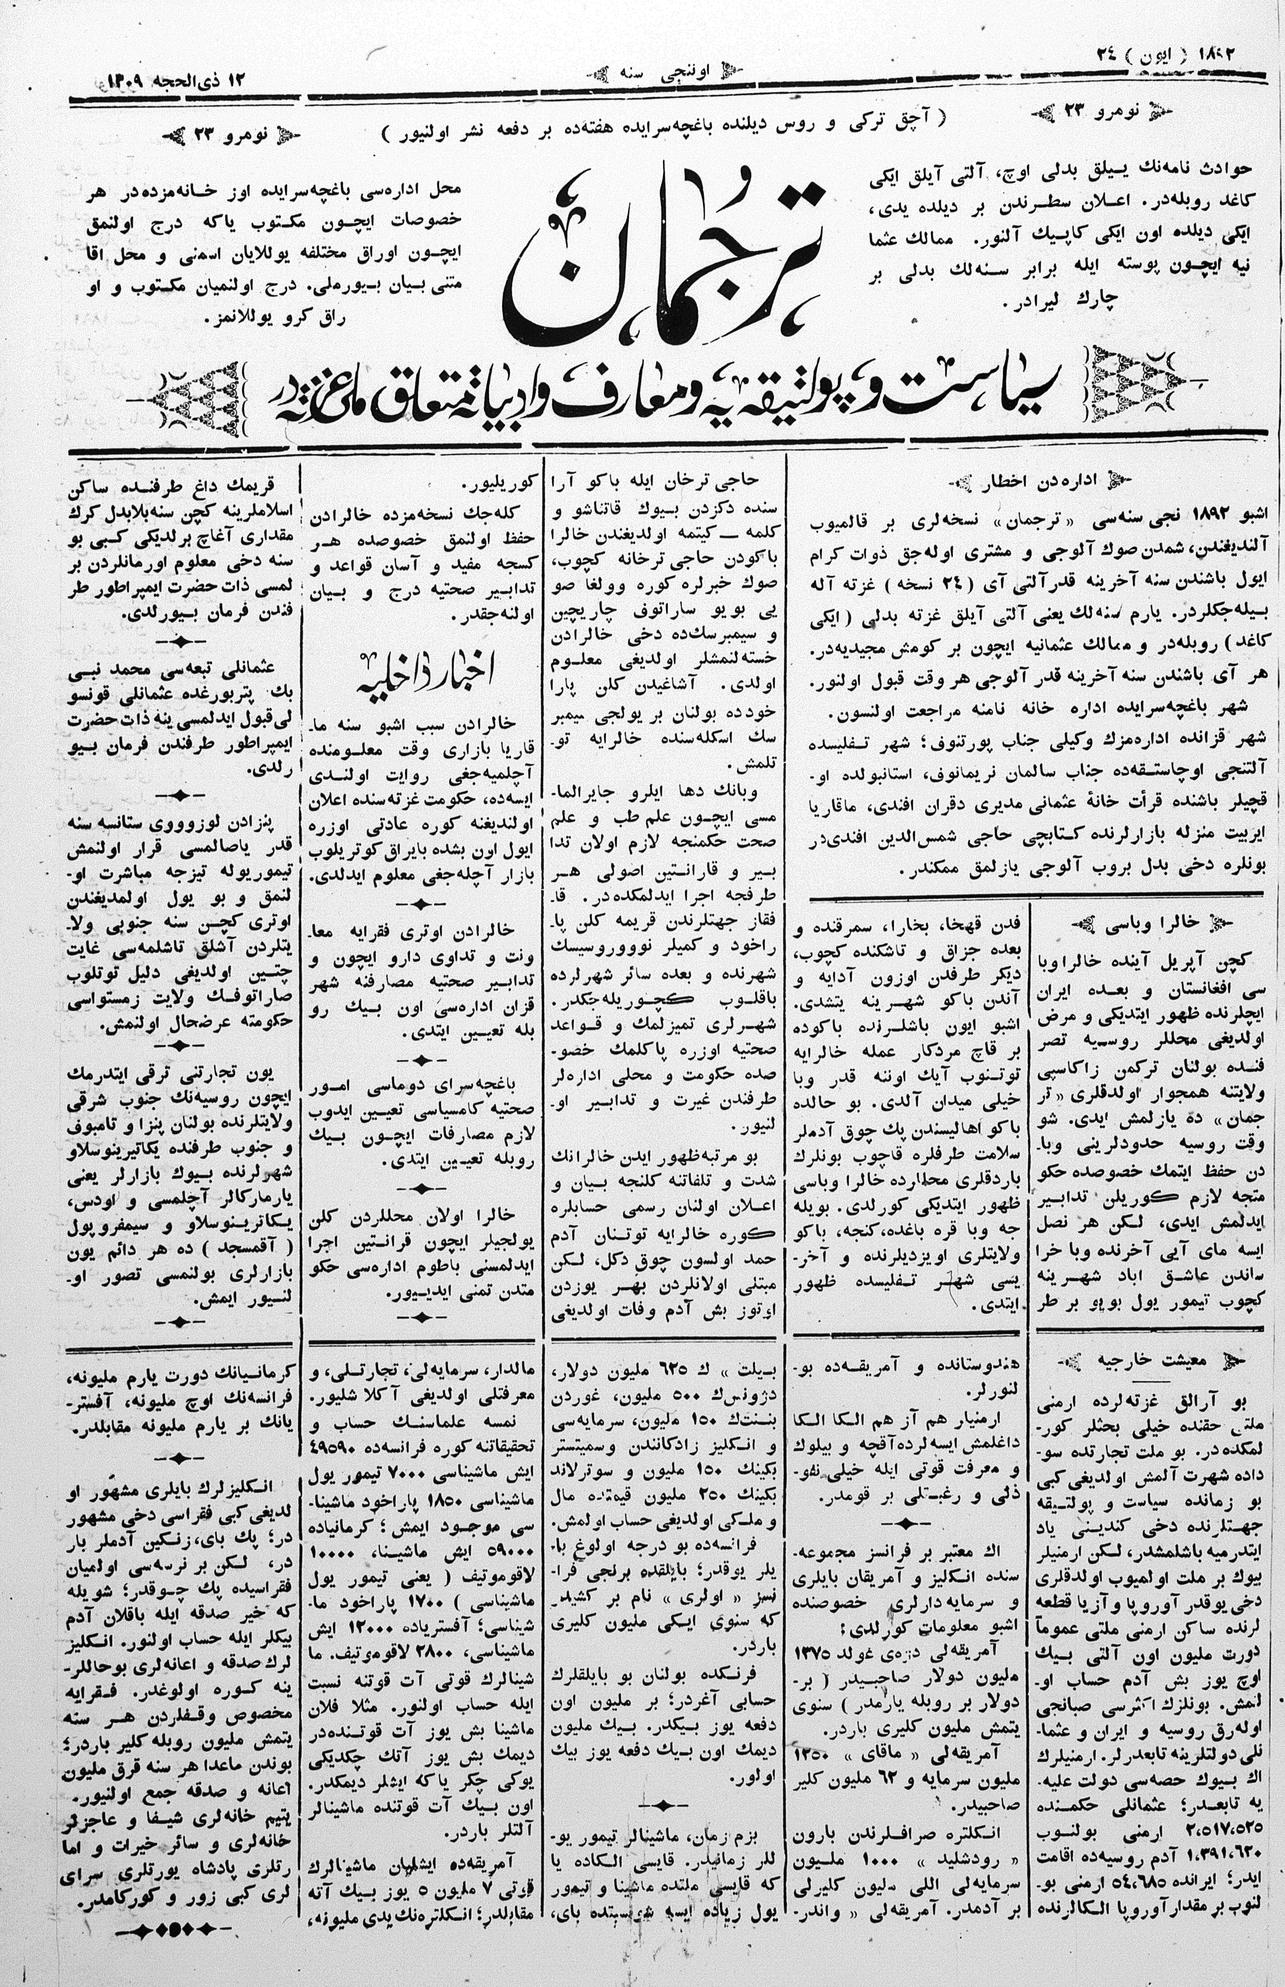 ١٨٩٢ ( ايون ) ٢٤
اوننجى سنه
١٢ ذى الحجه ١٣٠٩
نومرو ٢٣
( آچق تركى و روس ديلنده باغچه‌سرايده هفته‌ده بر دفعه نشر اولنيور )
نومرو ٢٣
حوادث نامه‌نك ييلق بدلى اوچ، آلتى آيلق ايكى
كاغد روبله‌در. اعلان سطرندن بر ديلده يدى،
ايكى ديلده اون ايكى كاپيك آلنور. ممالك عثما
نيه ايچون پوسته ايله برابر سنه‌لك بدلى بر
چارك ليرادر.
ترجمان
محل اداره‌سى باغچه‌سرايده اوز خانه‌مزده‌در هر
خصوصات ايچون مكتوب ياكه درج اولنمق
ايچون اوراق مختلفه يوللايان اسمنى و محل اقا
متنى بيان بيورملى. درج اولنميان مكتوب و او
راق كرو يوللانمز.
سياست و پولتيقه‌يه و معارف و ادبياته متعلق ملى غزته‌در
اداره‌دن اخطار
اشبو ١٨٩٢ نجى سنه‌سى «ترجمان» نسخه‌لرى بر قالميوب
آلنديغندن، شمدن صوك آلوجى و مشترى اوله‌جق ذوات كرام
ايول باشندن سنه آخرينه قدر آلتى آى (٢٤ نسخه) غزته آله
بيله‌جكلردر. يارم سنه‌لك يعنى آلتى آيلق غزته بدلى (ايكى
كاغد) روبله‌در و ممالك عثمانيه ايچون بر كومش مجيديه‌در.
هر آى باشندن سنه آخرينه قدر آلوجى هر وقت قبول اولنور.
شهر باغچه‌سرايده اداره خانه نامنه مراجعت اولنسون.
شهر قزانده اداره‌مزك وكيلى جناب پورتنوف؛ شهر تفليسده
آلتنجى اوچاستقه‌ده جناب سالمان نريمانوف، استانبولده او-
قچيلر باشنده قرأت خانۀ عثمانى مديرى دقران افندى، ماقاريا
ايربيت منزله بازارلرنده كتابچى حاجى شمس‌الدين افندى‌در
بونلره دخى بدل بروب آلوجى يازلمق ممكندر.
خالرا وباسى
كچن آپريل آينده خالرا وبا
سى افغانستان و بعده ايران
ايچلرنده ظهور ايتديكى و مرض
اولديغى محللر روسيه تصر
فنده بولنان تركمن زاكاسپى
ولايتنه همجوار اولدقلرى «تر
جمان» ده يازلمش ايدى. شو
وقت روسيه حدودلرينى وبا-
دن حفظ ايتمك خصوصده حكو
متجه لازم كوريلن تدابير
ايدلمش ايدى، لكن هر نصل
ايسه ماى آيى آخرنده وبا خرا
ساندن عاشق اباد شهرينه
كچوب تيمور يول بويو بر طر
فدن قهخا، بخارا، سمرقنده و
بعده جزاق و تاشكنده كچوب،
ديكر طرفدن اوزون آدايه و
آندن باكو شهرينه يتشدى.
اشبو ايون باشلرنده باكوده
بر قاچ مردكار عمله خالرايه
توتنوب آيك اوننه قدر وبا
خيلى ميدان آلدى. بو حالده
باكو اهاليسندن پك چوق آدملر
سلامت طرفلره قاچوب بونلرك
باردقلرى محللرده خالرا وباسى
ظهور ايتديكى كورلدى. بويله
جه وبا قره باغده، كنجه، باكو
ولايتلرى اويزديلرنده و آخر-
يسى شهر تفليسده ظهور
ايتدى.
حاجى ترخان ايله باكو آرا
سنده دكزدن بيوك قاتناشو و
كلمه — كيتمه اولديغندن خالرا
باكودن حاجى ترخانه كچوب،
صوك خبرلره كوره وولغا صو
يى بويو ساراتوف چاريچين
و سيمبرسك‌ده دخى خالرادن
خسته‌لنمشلر اولديغى معلوم
اولدى. آشاغيدن كلن پارا
خودده بولنان بر يولجى سيمبر
سك اسكله‌سنده خالرايه تو-
تلمش.
وبانك دها ايلرو جايرالما-
مسى ايچون علم طب و علم
صحت حكمنجه لازم اولان تدا
بير و قارانتين اصولى هر
طرفجه اجرا ايدلمكده‌در. قا-
فقاز جهتلرندن قريمه كلن پا-
راخود و كميلر نووروسيسك
شهرنده و بعده سائر شهرلرده
باقلوب كچوريله‌جكدر.
شهرلرى تميزلمك و قواعد
صحتيه اوزره پاكلمك خصو-
صده حكومت و محلى اداره‌لر
طرفندن غيرت و تدابير او-
لنيور.
بو مرتبه ظهور ايدن خالرانك
شدت و تلفاتنه كلنجه بيان و
اعلان اولنان رسمى حسابلره
كوره خالرايه توتنان آدم
حمد اولسون چوق دكل، لكن
مبتلى اولانلردن بهر يوزدن
اوتوز بش آدم وفات اولديغى
كوريليور.
كله‌جك نسخه‌مزده خالرادن
حفظ اولنمق خصوصده هر
كسجه مفيد و آسان قواعد و
تدابير صحتيه درج و بيان
اولنه‌جقدر.
اخبار داخليه
خالرادن سبب اشبو سنه ما-
قاريا بازارى وقت معلومنده
آچلميه‌جغى روايت اولندى
ايسه‌ده، حكومت غزته‌سنده اعلان
اولنديغنه كوره عادتى اوزره
ايول اون بشده بايراق كوتريلوب
بازار آچله‌جغى معلوم ايدلدى.
خالرادن اوترى فقرايه معا-
ونت و تداوى دارو ايچون و
تدابير صحتيه مصارفنه شهر
قزان اداره‌سى اون بيك رو
بله تعيين ايتدى.
باغچه‌سراى دوماسى امور
صحتيه كامسياسى تعيين ايدوب
لازم مصارفات ايچون بيك
روبله تعيين ايتدى.
خالرا اولان محللردن كلن
يولجيلر ايچون قرانتين اجرا
ايدلمسنى باطوم اداره‌سى حكو
متدن تمنى ايدييور.
قريمك داغ طرفنده ساكن
اسلاملرينه كچن سنه بلابدل كرك
مقدارى آغاچ برلديكى كبى بو
سنه دخى معلوم اورمانلردن بر
لمسى ذات حضرت ايمپراطور طر
فندن فرمان بيورلدى.
عثمانلى تبعه‌سى محمد نبى
بك پتربورغده عثمانلى قونسو
لى قبول ايدلمسى ينه ذات حضرت
ايمپراطور طرفندن فرمان بيو
رلدى.
پنزادن لوزوووى ستانسه سنه
قدر ياصالمسى قرار اولنمش
تيموريوله تيزجه مباشرت او-
لنمق و بو يول اولمديغندن
اوترى كچن سنه جنوبى ولا-
يتلردن آشلق تاشلمه‌سى غايت
چتين اولديغى دليل توتلوب
صاراتوفك ولايت زمستواسى
حكومته عرضحال اولنمش.
يون تجارتنى ترقى ايتدرمك
ايچون روسيه‌نك جنوب شرقى
ولايتلرنده بولنان پنزا و تامبوف
و جنوب طرفنده يكاتيرينوسلاو
شهرلرنده بيوك بازارلر يعنى
يارماركالر آچلمسى و اودس،
يكاترينوسلاو و سيمفروپول
( آقمسجد ) ده هر دائم يون
بازارلرى بولنمسى تصور او-
لنيور ايمش.
معيشت خارجيه
بو آرالق غزته‌لرده ارمنى
ملتى حقنده خيلى بحثلر كور-
لمكده‌در. بو ملت تجارتده سو-
داده شهرت آلمش اولديغى كبى
بو زمانده سياست و پولتيقه
جهتلرنده دخى كندينى ياد
ايتدرميه باشلمشدر، لكن ارمنيلر
بيوك بر ملت اولميوب اولدقلرى
دخى يوقدر آوروپا و آزيا قطعه
لرنده ساكن ارمنى ملتى عموماً
دورت مليون اون آلتى بيك
اوچ يوز بش آدم حساب او-
لنمش. بونلرك اكثرسى صبانجى
اوله‌رق روسيه و ايران و عثما-
نلى دولتلرينه تابعدرلر. ارمنيلرك
اك بيوك حصه‌سى دولت عليه-
يه تابعدر؛ عثمانلى حكمنده
٢،٥١٧،٥٢٥ ارمنى بولنوب
١،٣٩١،٦٣٠ آدم روسيه‌ده اقامت
ايدر؛ ايرانده ٥٤،٦٨٥ ارمنى بو-
لنوب بر مقدار آوروپا الكالرنده
هندوستانده و آمريقه‌ده بو-
لنورلر.
ارمنيار هم آز هم الكا الكا
داغلمش ايسه‌لرده آقچه و بيلوك
و معرفت قوتى ايله خيلى نفو-
ذلى و رغبتلى بر قومدر.
اك معتبر بر فرانسز مجموعه-
سنده انكليز و آمريقان بايلرى
و سرمايه‌دارلرى خصوصنده
اشبو معلومات كورلدى؛
آمريقه‌لى دزه‌ى غولد ١٣٧٥
مليون دولار صاحبيدر ( بر-
دولار بر روبله يارمدر ) سنوى
يتمش مليون كليرى باردر.
آمريقه‌لى « ماقاى » ١٢٥٠
مليون سرمايه و ٦٢ مليون كلير
صاحبيدر.
انكلتره صرافلرندن بارون
« رودشليد » ١٠٠٠ مليون
سرمايه‌لى اللى مليون كليرلى
بر آدمدر. آمريقه‌لى « واندر-
بيلت » ك ٦٢٥ مليون دولار،
دژونس‌ك ٥٠٠ مليون، غوردن
بننت‌ك ١٥٠ مليون، سرمايه‌سى
و انكليز زادكانندن وسميتستر
بكينك ١٥٠ مليون و سوترلاند
بكينك ٢٥٠ مليون قيمتده مال
و ملكى اولديغى حساب اولمش.
فرانسه‌ده بو درجه اولوغ با-
يلر يوقدر؛ بايلقده برلجى فرا-
نسز « اولرى » نام بر كشيدر
كه سنوى ايكى مليون كليرى
باردر.
فرنكده بولنان بو بايلقلرك
حسابى آغردر؛ بر مليون اون
دفعه يوز بيكدر. بيك مليون
ديمك اون بيك دفعه يوز بيك
اولور.
بزم زمان، ماشينالر تيمور يو-
للر زمانيدر. قايسى الكاده يا
كه قايسى ملتده ماشينا و تيمور
يول زياده ايسه شوسيتده باى،
مالدار، سرمايه‌لى، تجارتلى، و
معرفتلى اولديغى آكلاشليور.
نمسه علماسنك حساب و
تحقيقاتنه كوره فرانسه‌ده ٤٩٥٩٠
ايش ماشيناسى ٧٠٠٠ تيمور يول
ماشيناسى ١٨٥٠ پاراخود ماشينا-
سى موجود ايمش؛ كرمانياده
٥٩٠٠٠ ايش ماشينا، ١٠٠٠٠
لاقوموتيف ( يعنى تيمور يول
ماشيناسى ) ١٧٠٠ پاراخود ما-
شيناسى؛ آفستر‌ياده ١٢٠٠٠ ايش
ماشيناسى، ٢٨٠٠ لاقوموتيف. ما
شينالرك قوتى آت قوتنه نسبت
ايله حساب اولنور. مثلا فلان
ماشينا بش يوز آت قوتنده‌در
ديمك بش يوز آتك چكديكى
يوكى چكر ياكه ايشلر ديمكدر.
اون بيك آت قوتنده ماشينالر
آلتلر باردر.
آمريقه‌ده ايشليان ماشينالرك
قوتى ٧ مليون ٥ يوز بيك آته
مقابلدر؛ انكلتره‌نك يدى مليونه،
كرمانيانك دورت يارم مليونه،
فرانسه‌نك اوچ مليونه، آفستر-
يانك بر يارم مليونه مقابلدر.
انكليزلرك بايلرى مشهور او
لديغى كبى فقراسى دخى مشهور
در؛ پك باى، زنكين آدملر بار
در، لكن بر نرسه‌سى اولميان
فقراسيده پك چوقدر؛ شويله
كه خير صدقه ايله باقلان آدم
بيكلر ايله حساب اولنور. انكليز
لرك صدقه و اعانه‌لرى بوحاللر-
ينه كوره اولوغدر. فقرايه
مخصوص وقفلردن هر سنه
يتمش مليون روبله كلير باردر؛
بوندن ماعدا هر سنه قرق مليون
اعانه و صدقه جمع اولنيور.
يتيم خانه‌لرى شيفا و عاجزلر
خانه‌لرى و سائر خيرات و اما
رتلرى پادشاه يورتلرى سراى
لرى كبى زور و كوركامدر.